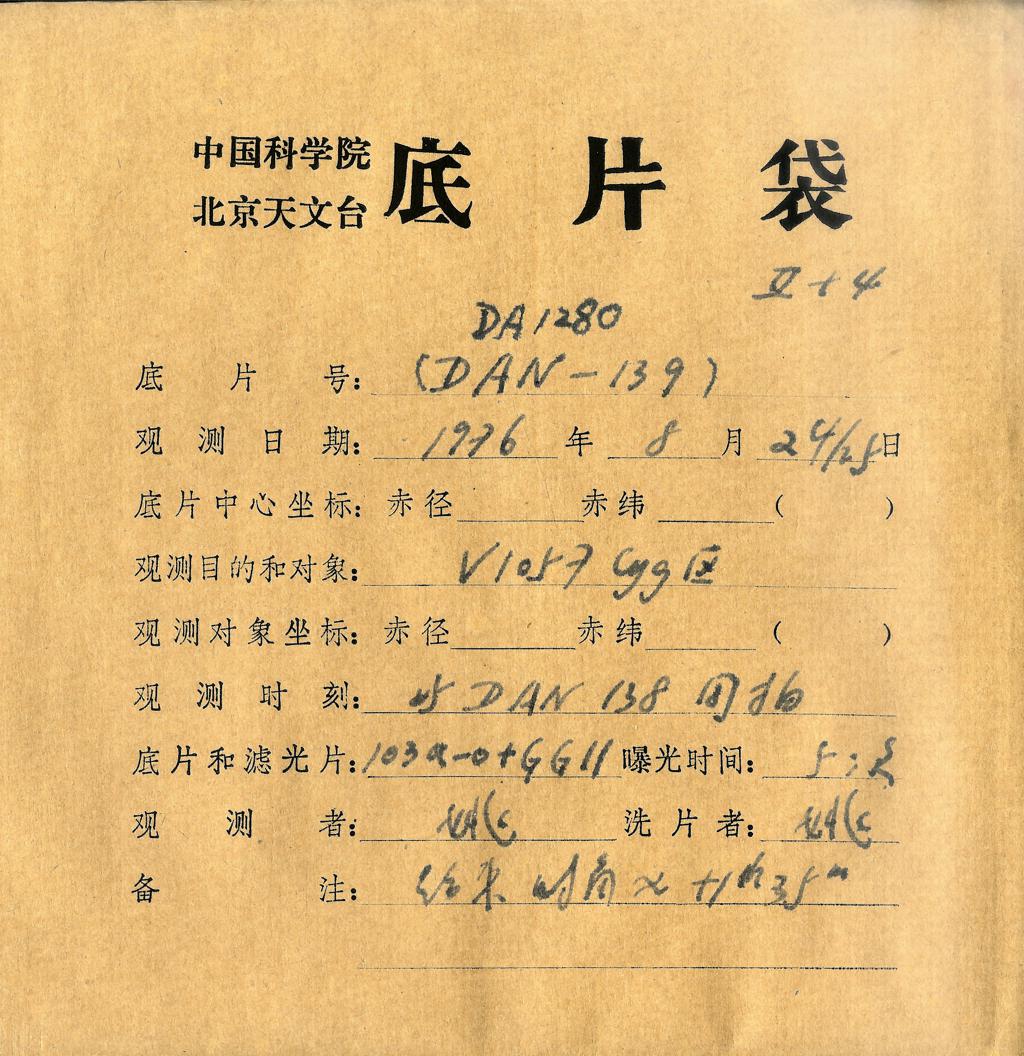 中国科学院
北京天文台
底片袋
II+4
DA1280
底片号: (DAN-139)
观测日期: 1976年8月24/25日
底片中心坐标: 赤径 赤纬 ( )
观测目的和对象: V1057 Cyg区
观测对象坐标: 赤径 赤纬 ( )
观测时刻: 与DAN 138同拍
底片和滤光片: 103a-o+GG11 曝光时间:
观测者: 洗片者:
备注: 结束时角≈+1h35m